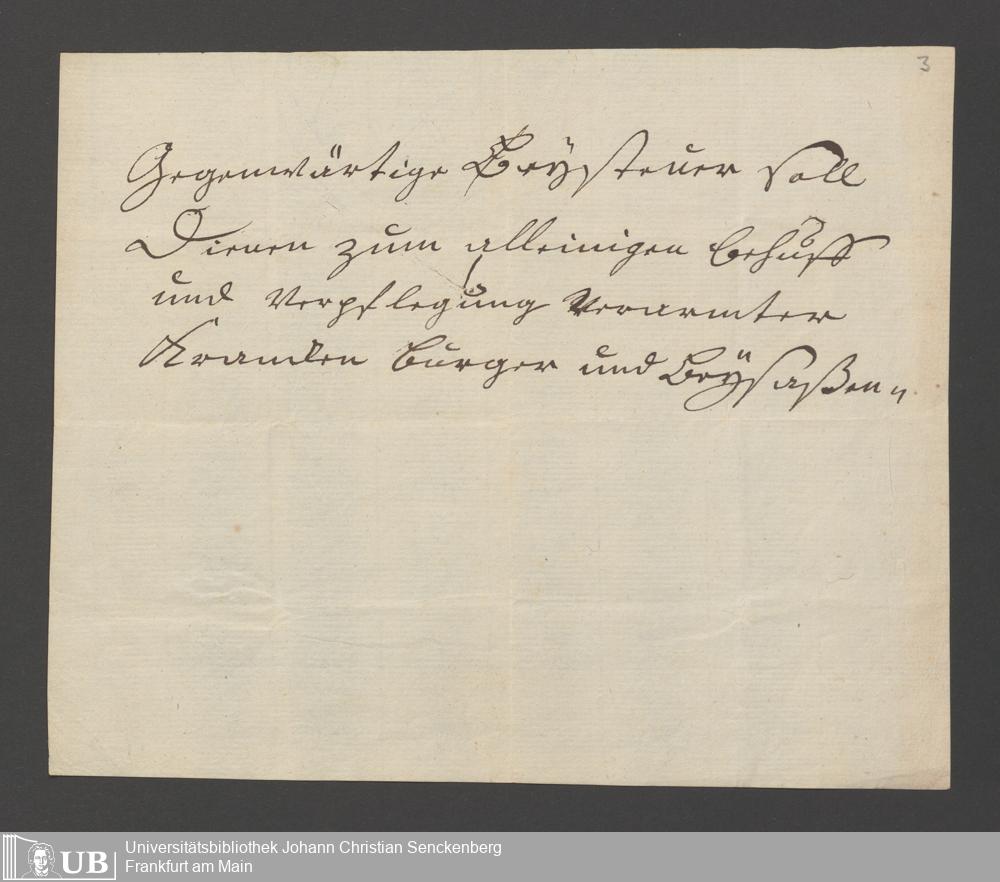 3
Gegenwärtige Beÿsteuer soll
Dienen zum alleinigen behuff
und Verpflegung Verarmter
Krancken burger und Beÿsaßen
UB
Universitätsbibliothek Johann Christian Senckenberg
Frankfurt am Main